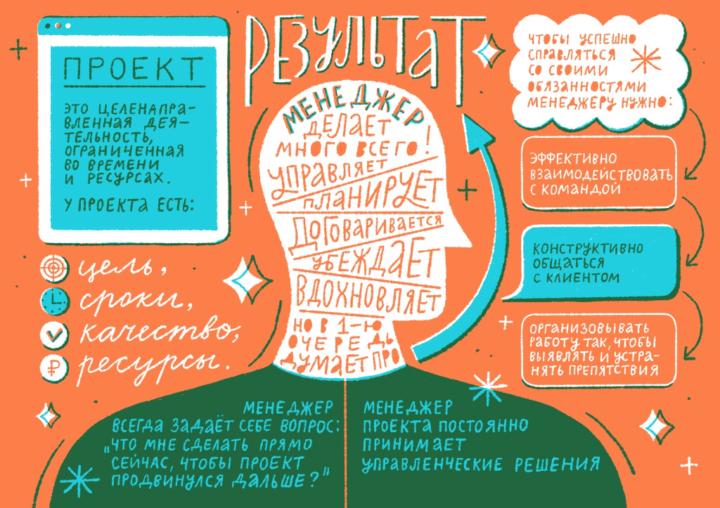 ПРОЕКТ
ЭТО ЦЕЛЕНАПРА-
ВЛЕННАЯ ДЕЯ-
ТЕЛЬНОСТЬ,
ОГРАНИЧЕННАЯ
ВО ВРЕМЕНИ
И РЕСУРСАХ.
У ПРОЕКТА ЕСТЬ:
цель,
сроки,
качество,
₽ ресурсы.
РЕЗУЛЬТАТ
МЕНЕДЖЕР
ДЕЛАЕТ
МНОГО ВСЕГО!
УПРАВЛЯЕТ
ПЛАНИРУЕТ
ДОГОВАРИВАЕТСЯ
УБЕЖДАЕТ
ВДОХНОВЛЯЕТ
НО В 1-Ю
ОЧЕРЕДЬ
ДУМАЕТ ПРО
ЧТОБЫ УСПЕШНО
СПРАВЛЯТЬСЯ
СО СВОИМИ
ОБЯЗАННОСТЯМИ
МЕНЕДЖЕРУ НУЖНО:
ЭФФЕКТИВНО
ВЗАИМОДЕЙСТВОВАТЬ
С КОМАНДОЙ
КОНСТРУКТИВНО
ОБЩАТЬСЯ
С КЛИЕНТОМ
ОРГАНИЗОВЫВАТЬ
РАБОТУ ТАК, ЧТОБЫ
ВЫЯВЛЯТЬ И УСТРА-
НЯТЬ ПРЕПЯТСТВИЯ
МЕНЕДЖЕР
ВСЕГДА ЗАДАЁТ СЕБЕ ВОПРОС:
„ЧТО МНЕ СДЕЛАТЬ ПРЯМО
СЕЙЧАС, ЧТОБЫ ПРОЕКТ
ПРОДВИНУЛСЯ ДАЛЬШЕ?"
МЕНЕДЖЕР
ПРОЕКТА ПОСТОЯННО
ПРИНИМАЕТ
УПРАВЛЕНЧЕСКИЕ РЕШЕНИЯ